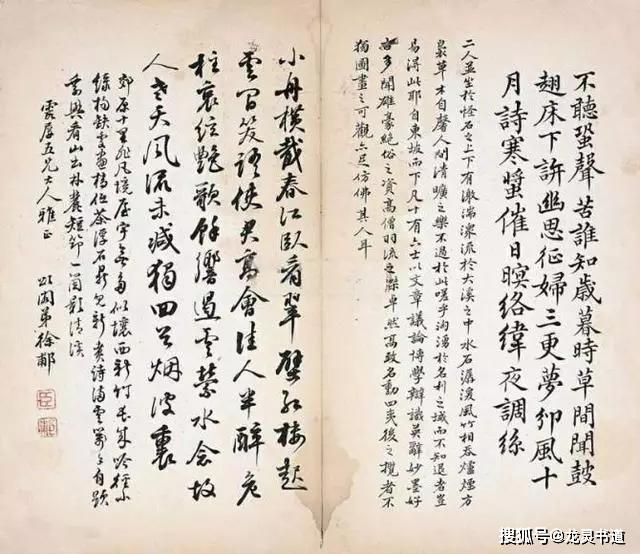 不聽蛩聲苦誰知歲暮時草間聞鼓
翅床下訴幽思征婦三更夢邠風十
月詩寒螿催日暝絡緯夜調絲
二人並坐於怪石之上下有激湍潨流於大溪之中水石潺湲風竹相吞爐煙方
裊草木自馨人間清曠之樂不過於此嗟乎洶湧於名利之域而不知退者豈
易得此耶自東坡而下凡十有六士以文章議論博學辯識英辭妙墨好
古多聞雄豪絕俗之資高僧羽流之傑卓然高致名動四夷後之攬者不
獨圖畫之可觀亦足仿佛其人耳
小舟橫截春江臥看翠壁紅樓起
雲間笑語使君高會佳人半醉危
柱哀絃艷歌餘響遶雲縈水念故
人老大風流未減獨回首烟波裏
郊原十里非凡境屋宇無多似壤西新竹長成吟徑小
綠楊缺處畫橋低茶浮石鼎新煮詩滿雲箋手自題
乘興看山出林麓短筇一個影清溪
五兄大人雅正
頌閣弟徐郙
臣
郙
搜狐号@龙灵书道